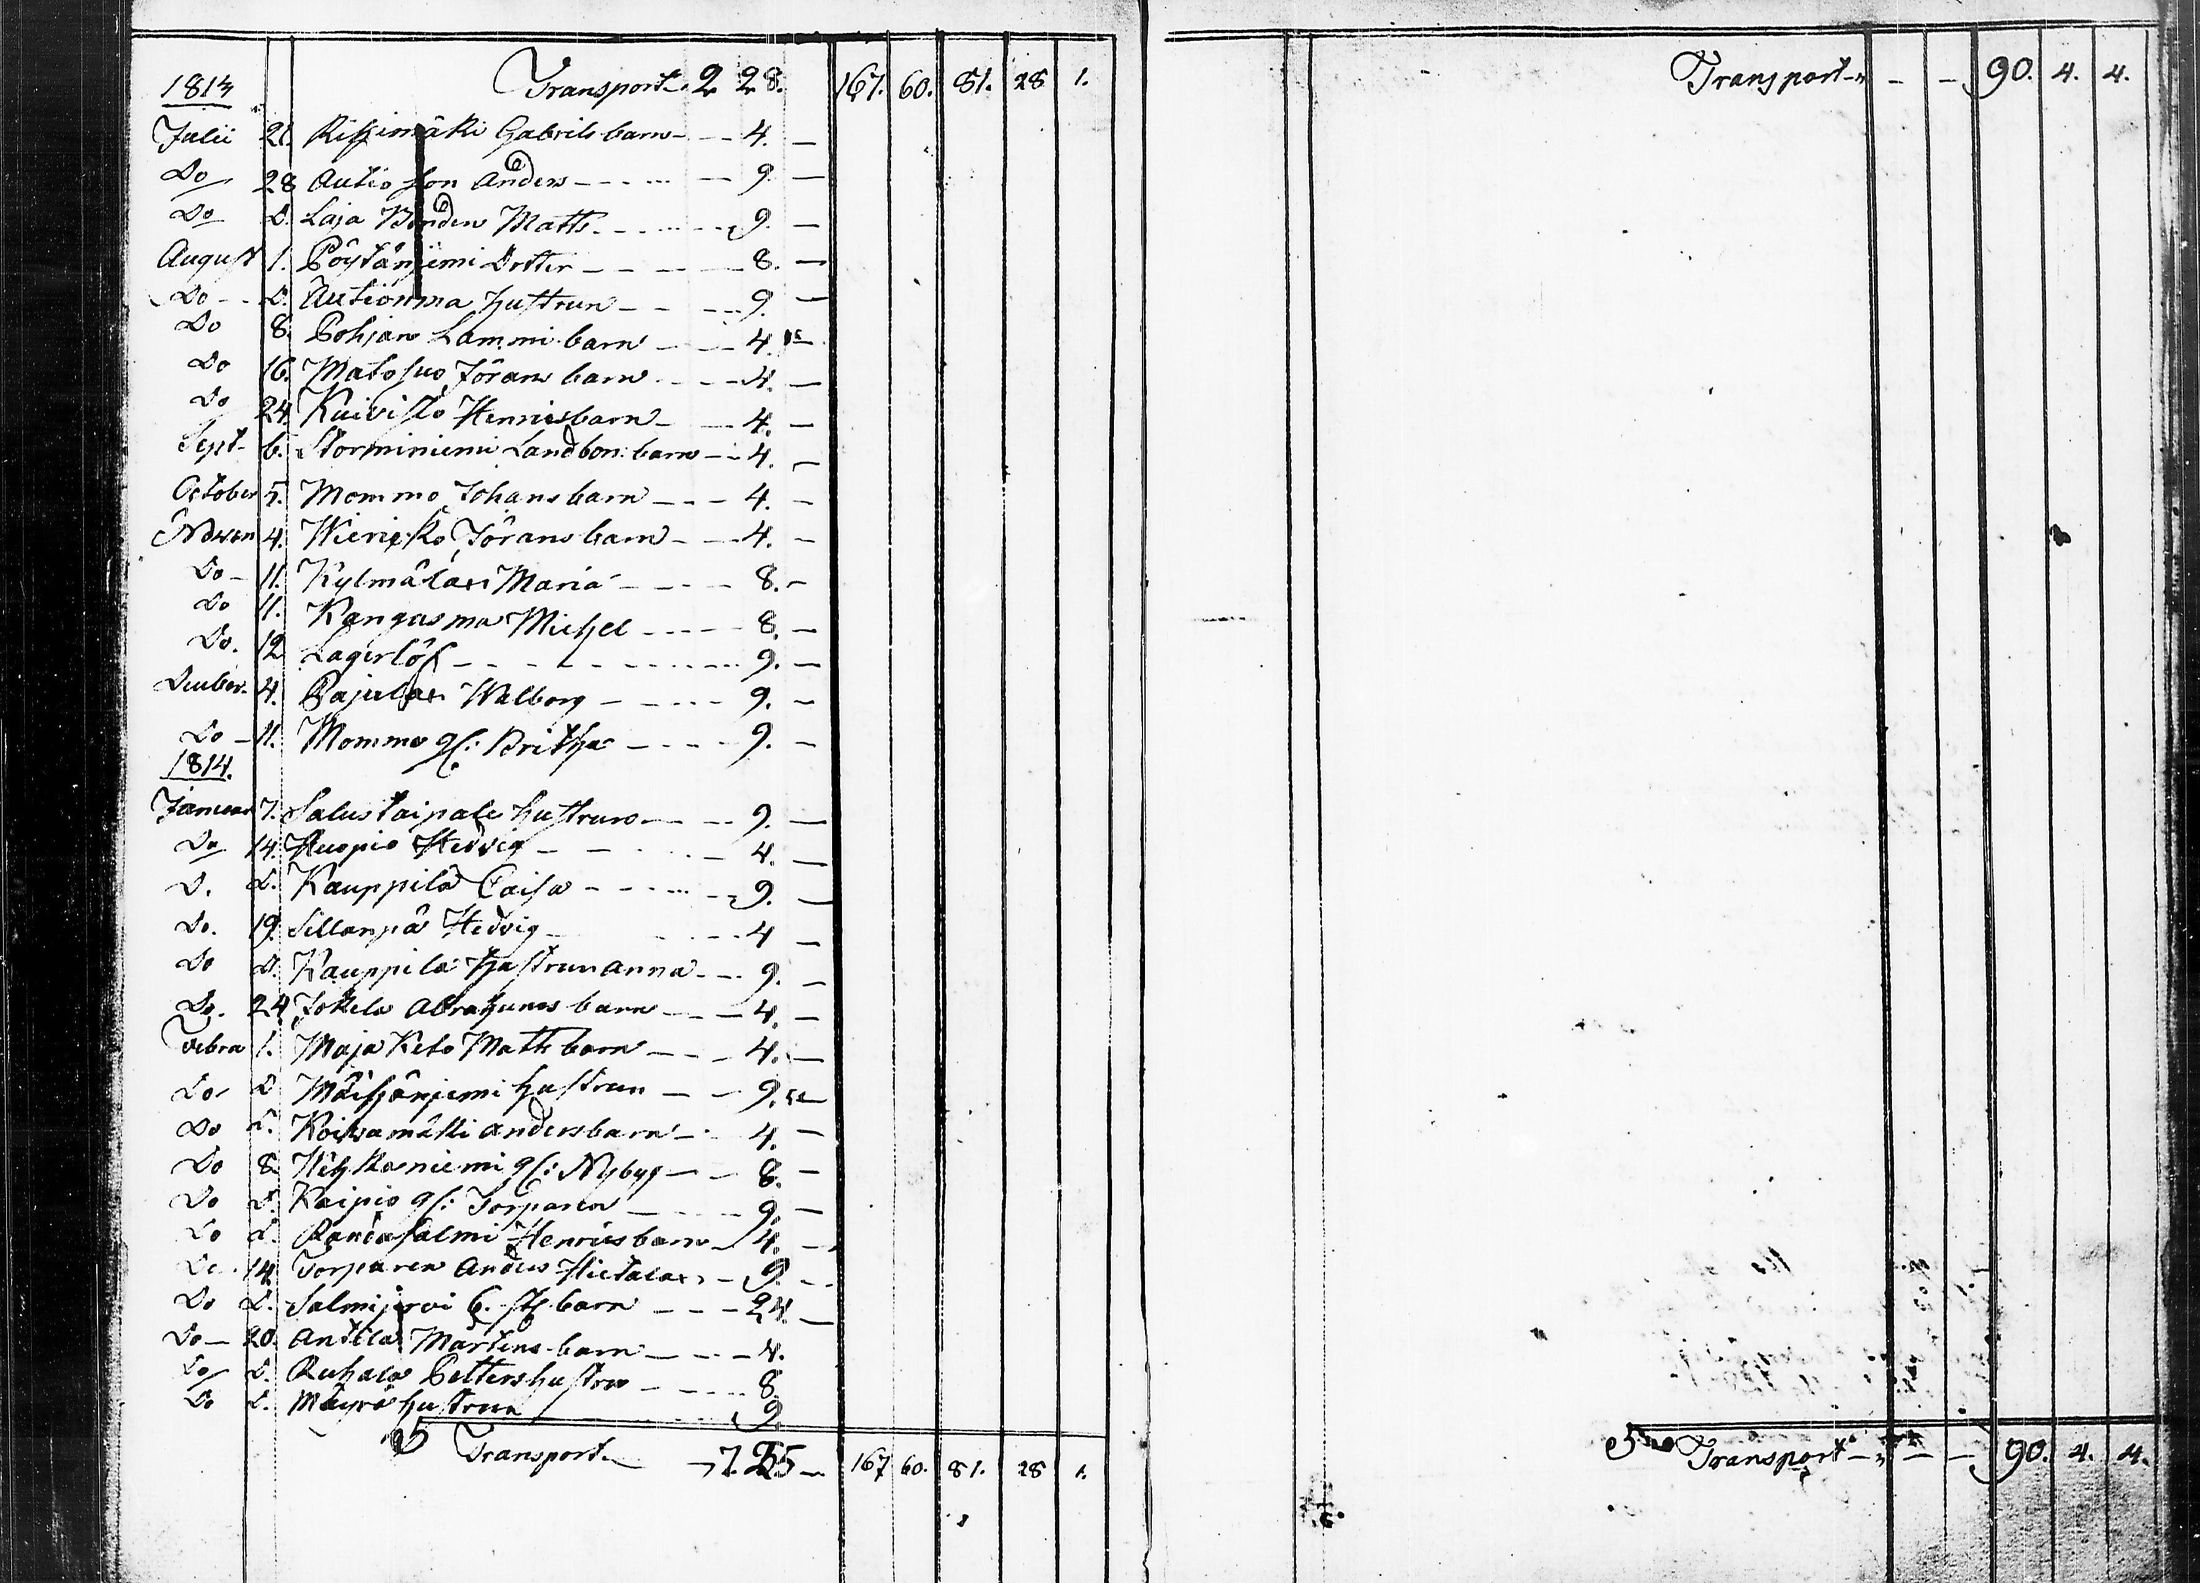 1813 Transport. 2 28. 167. 60. 81. 28 1.
Julii 21. Gabriels barn 4. —
Do 28 Autio Son Anders 9. —
Do D. Laja Bonden Matts 9. —
August 1. Pöytäniemi Dotter 8. —
Do D. Autionma hustrun 9. —
Do 8. Pohjan Lammi barn 4. —
Do 16. Matosuo Jörans barn 4. —
Do 24. Kuivisto Henricsbarn 4. —
Sept. 6. Storminiemi Landbon: barn 4. —
October 5. Mommo Johans barn 4. —
Noven 4. Jörans barn 4. —
Do 11. Maria 8. —
Do 11. Kangasma Michel 8. —
Do. 12 Lagerlöf 9. —
Decuber. 4. Walborg 9. —
Do 11. Mommo gl: Britha 9. —
1814.
Januar 7. Salustaipale hustrun 9. —
Do 14. Kuopio Hedvig 4. —
D. D. Kauppila Caisa 9. —
Do. 19. Sillanpä Hedvig 4 —
Do D. Kauppila hustrun Anna 9. —
Do. 24 Jokela Abrahams barn 4. —
Febra 1. Maja Keto Matts barn 4. —
Do D hustrun 9. —
Do D. Andersbarn 4. —
Do 8. gl: Nybyg 8. —
Do D. Kaipio gl: Torparen 9. —
Do D. Henricsbarn 4. —
Do 14. Torparen Anders 9. —
Do D. Salmijervi 6. st barn 24. —
Do 20. Anttila Mårtens barn 4.
Do D. Ruhala Petters hustru 8.
Do D. Mäyrä hustrun 9.
Transport. 7. 25 — 167 60. 81. 28 1.
Transport — — 90. 4. 4.
Transport — — 90. 4. 4.